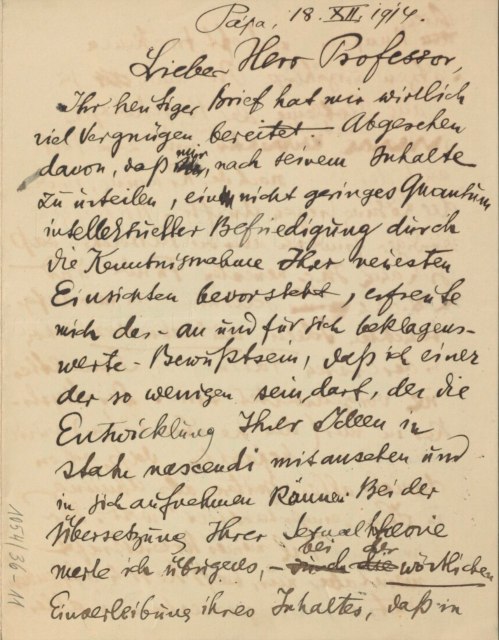 Pápa, 18. XII. 1914.
Lieber Herr Professor,
Ihr heutiger Brief hat mir wirklich
viel Vergnügen bereitet. Abgesehen
davon, daß mir, nach seinem Inhalte
zu urteilen, ein nicht geringes Quantum
intellektueller Befriedigung durch
die Kenntnisnahme Ihrer neuesten
Einsichten bevorsteht, erfreute
mich das – an und für sich beklagens-
werte – Bewußtsein, daß ich einer
der so wenigen sein darf, der die
Entwicklung Ihrer Ideen in
statu nascendi mitansehen und
in sich aufnehmen können. Bei der
Übersetzung Ihrer Sexualtheorie
merke ich übrigens, – bei der wörtlichen
Einverleibung ihres Inhaltes, daß in
1054/36-11